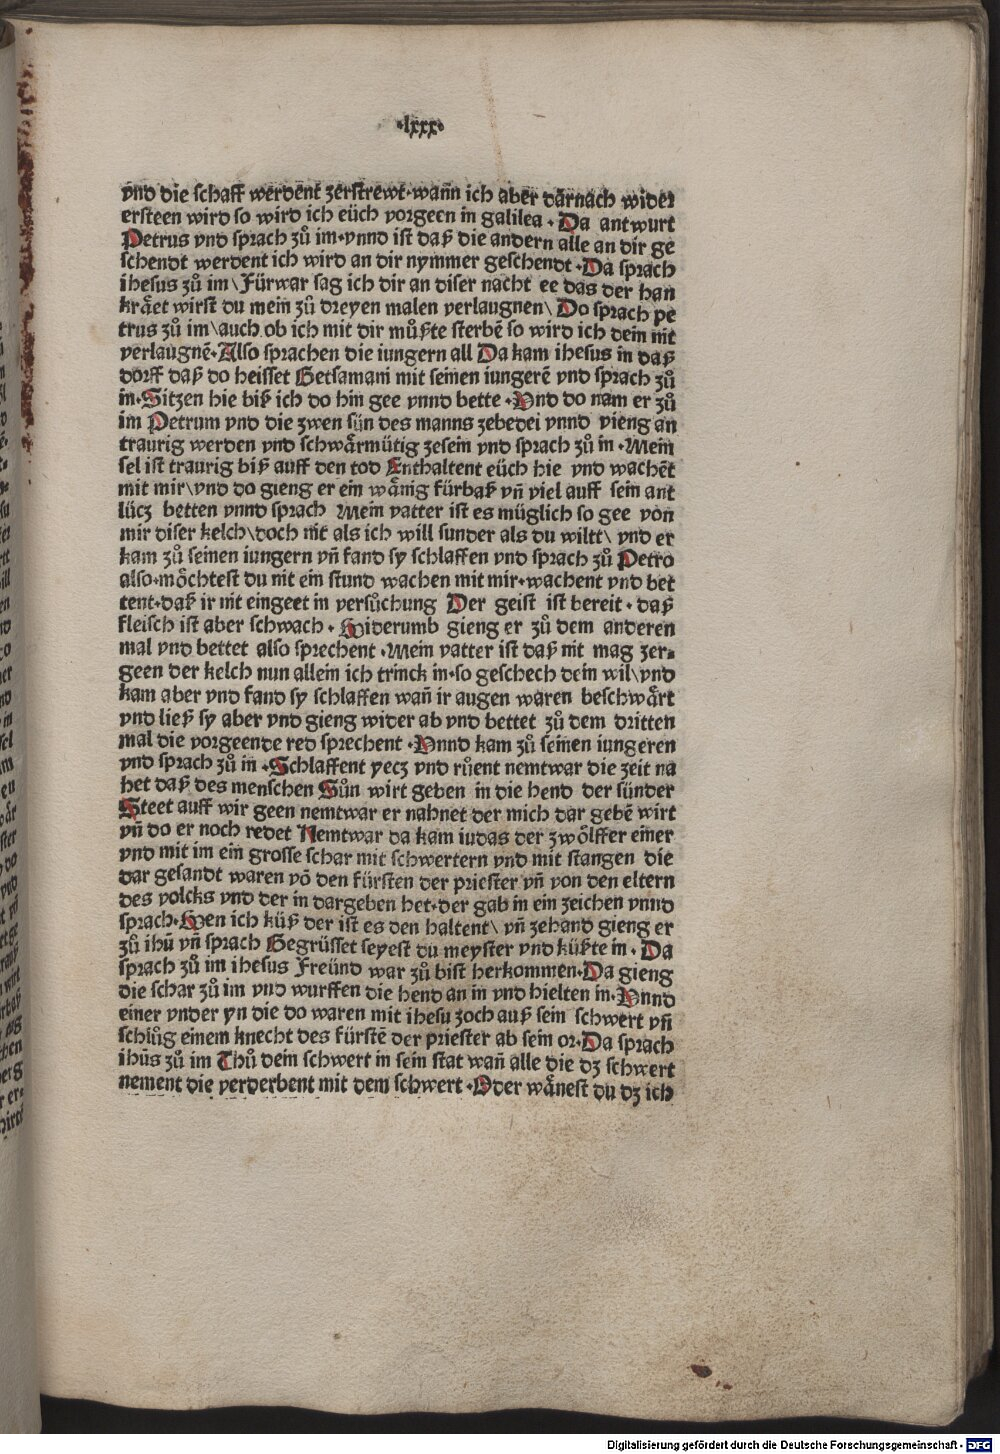 ·lxxx·
vnd die schaff werdent zerstrewt·wañ ich aber darnach wider
ersteen wird so wird ich eüch vorgeen in galilea·Da antwurt
Petrus vnd sprach zů im·vnnd ist daß die andern alle an dir ge
schendt werdent ich wird an dir nymmer geschendt·Da sprach
ihesus zů im\Fürwar sag ich dir an diser nacht ee das der han
kräet wirst du mein zů dreyen malen verlaugnen\Do sprach pe
trus zů im\auch ob ich mit dir můßte sterbẽ so wird ich dein nit
verlaugnẽ·Also sprachen die iungern all Da kam ihesus in daß
dorff daß do heisset Getsamani mit seinen iungerẽ vnd sprach zů
in·Sitzen hie biß ich do hin gee vnnd bette·Vnd do nam er zů
im Petrum vnd die zwen sün des manns zebedei vnnd vieng an
traurig werden vnd schwärmütig zesein vnd sprach zů in·Mein
sel ist traurig biß auff den tod Enthaltent eüch hie vnd wachẽt
mit mir\vnd do gieng er ein wänig fürbaß vñ viel auff sein ant
lücz betten vnnd sprach Mein vatter ist es müglich so gee von
mir diser kelch\doch nit als ich will sunder als du wiltt\vnd er
kam zů seinen iungern vñ fand sy schlaffen vnd sprach zů Petro
also·möchtest du nit ein stund wachen mit mir·wachent vnd bet
tent·daß ir nit eingeet in versůchung Der geist ist bereit·daß
fleisch ist aber schwach·Widerumb gieng er zů dem anderen
mal vnd bettet also sprechent·Mein vatter ist daß nit mag zer-
geen der kelch nun allein ich trinck in·so geschech dein wil\vnd
kam aber vnd fand sy schlaffen wañ ir augen waren beschwärt
vnd ließ sy aber vnd gieng wider ab vnd bettet zů dem dritten
mal die vorgeende red sprechent·Vnnd kam zů seinen iungeren
vnd sprach zů in·Schlaffent yecz vnd růent nemtwar die zeit na
het daß des menschen Sůn wirt geben in die hend der sünder
Steet auff wir geen nemtwar er nahnet der mich dar gebẽ wirt
vñ do er noch redet Nemtwar da kam iudas der zwölffer einer
vnd mit im ein grosse schar mit schwertern vnd mit stangen die
dar gesandt waren võ den fürsten der priester vñ von den eltern
des volcks vnd der in dargeben het·der gab in ein zeichen vnnd
sprach·Wen ich küß der ist es den haltent\vñ zehand gieng er
zů ihũ vñ sprach Gegrüsset seyest du meyster vnd küßte in·Da
sprach zů im ihesus Freünd war zů bist herkommen·Da gieng
die schar zů im vnd wurffen die hend an in vnd hielten in·Vnnd
einer vnder yn die do waren mit ihesu zoch auß sein schwert vñ
schlůg einem knecht des fürstẽ der priester ab sein or·Da sprach
ihũs zů im Thů dein schwert in sein stat wañ alle die dz schwert
nement die verderbent mit dem schwert·Oder wänest du dz ich
Digitalisierung gefördert durch die Deutsche Forschungsgemeinschaft - DFG